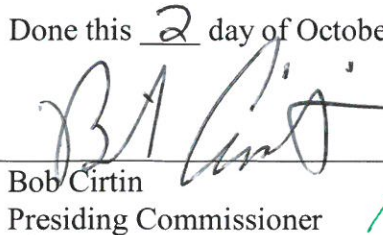 Done this 2 day of Octobe
Bob Cirtin
Presiding Commissioner